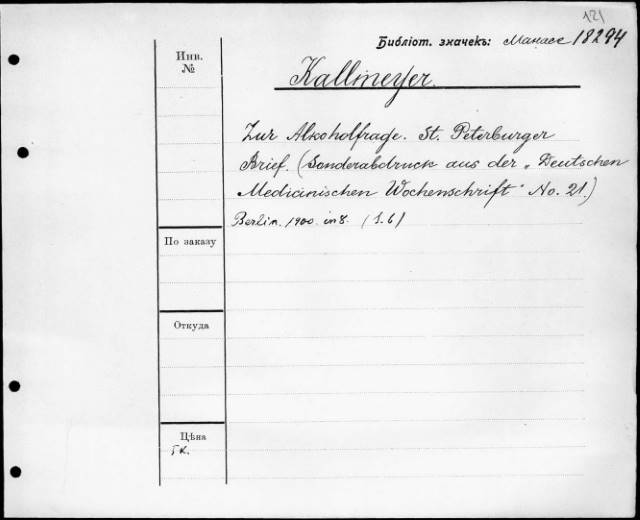 121
Библіот. значекъ: Манасе 18294
Инв.
№
Kallmeyer.
Zur Alkoholfrage. St. Peterburger
Brief. (Sonderabdruck aus der „Deutschen
Medicinischen Wochenschrift" No. 21.)
Berlin. 1900. in 8. (S. 6)
По заказу
Откуда
Цѣна
гк.